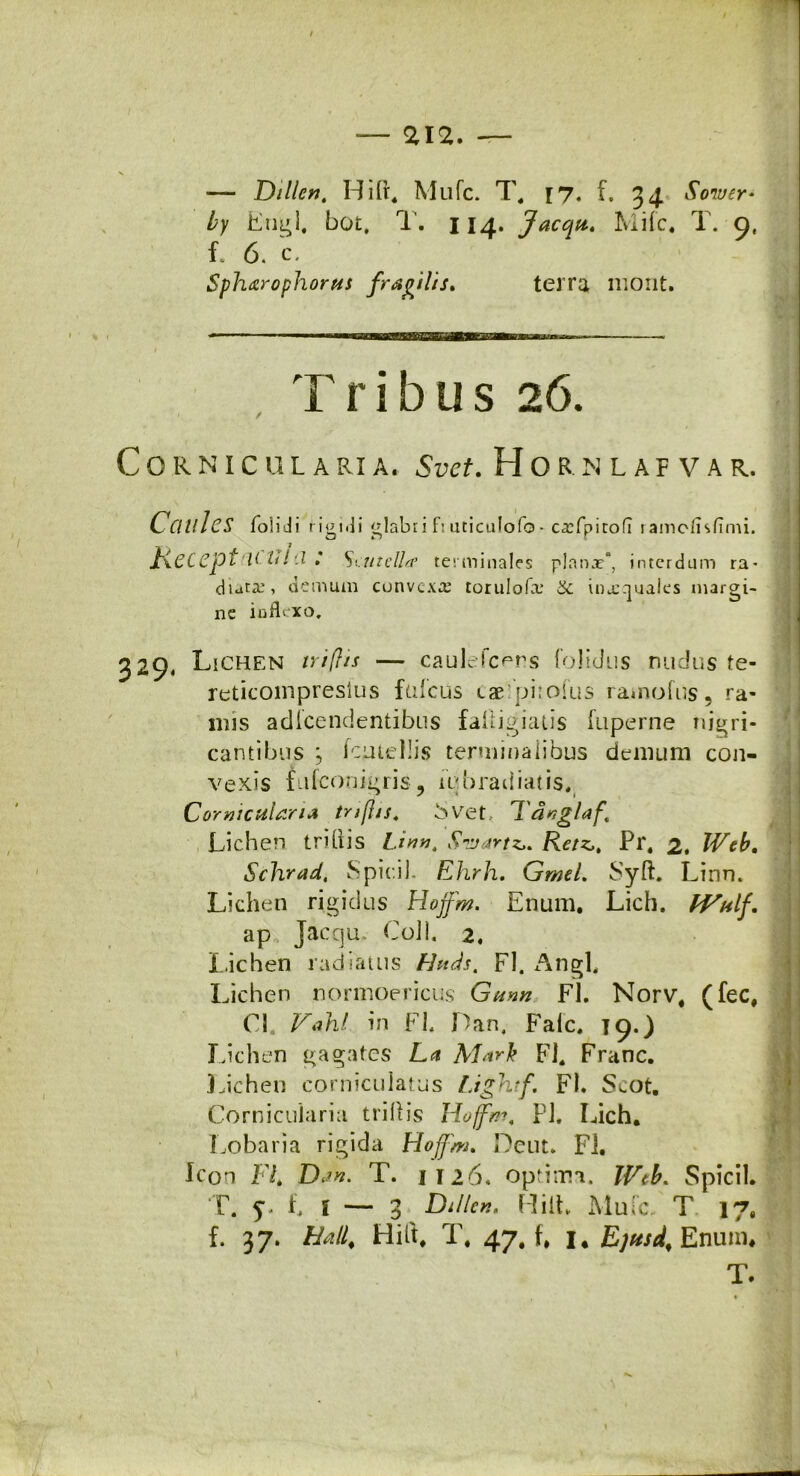 — 212. —
— Dillen. Hiſt. Muſc. T. 17. f. 34 Sower-
by Engl. bot. T. 114. Jacqu. Miſc. T. 9.
f. 6. c.
Sphærophorus fragilis. terra mont.
Tribus 26.
CORNICULARIA. Svet. HORNLAFVAR.
Caules ſolidi rigidi glabri fruticuloſo-cæſpitoſi ramoſisſimi.
Receptacula: Scutellæ terminales planæ, interdum ra-
diatæ, demum convexæ toruloſæ & inæquales margi-
ne inflexo.
329. LICHEN triſtis — cauleſcens ſolidus nudus te-
reticompresſus fuſcus cæſpitoſus ramoſus, ra-
mis adſcendentibus faſtigiatis ſuperne nigri-
cantibus ; ſcutellis terminalibus demum con-
vexis fuſconigris, ſubradiatis.
Cornicularia triſtis. Svet. Tånglaf.
Lichen triſtis Linn. Swartz. Retz. Pr. 2. Web.
Schrad. Spicil. Ehrh. Gmel. Syſt. Linn.
Lichen rigidus Hoffm. Enum. Lich. Wulf.
ap. Jacqu. Coll. 2.
Lichen radiatus Huds. Fl. Angl.
Lichen normoericus Gunn Fl. Norv. (ſec.
Cl. Vahl in Fl. Dan. Faſc. 19.)
Lichen gagates La Mark Fl. Franc.
Lichen corniculatus Lightf. Fl. Scot.
Cornicularia triſtis Hoffm. Pl. Lich.
Lobaria rigida Hoffm. Deut. Fl.
Icon Fl. Dan. T. 1126. optima. Web. Spicil.
T. 5. f. 1 — 3 Dillen. Hiſt. Muſc. T 17.
f. 37. Hall. Hiſt. T. 47. f. 1. Ejusd. Enum.
T.